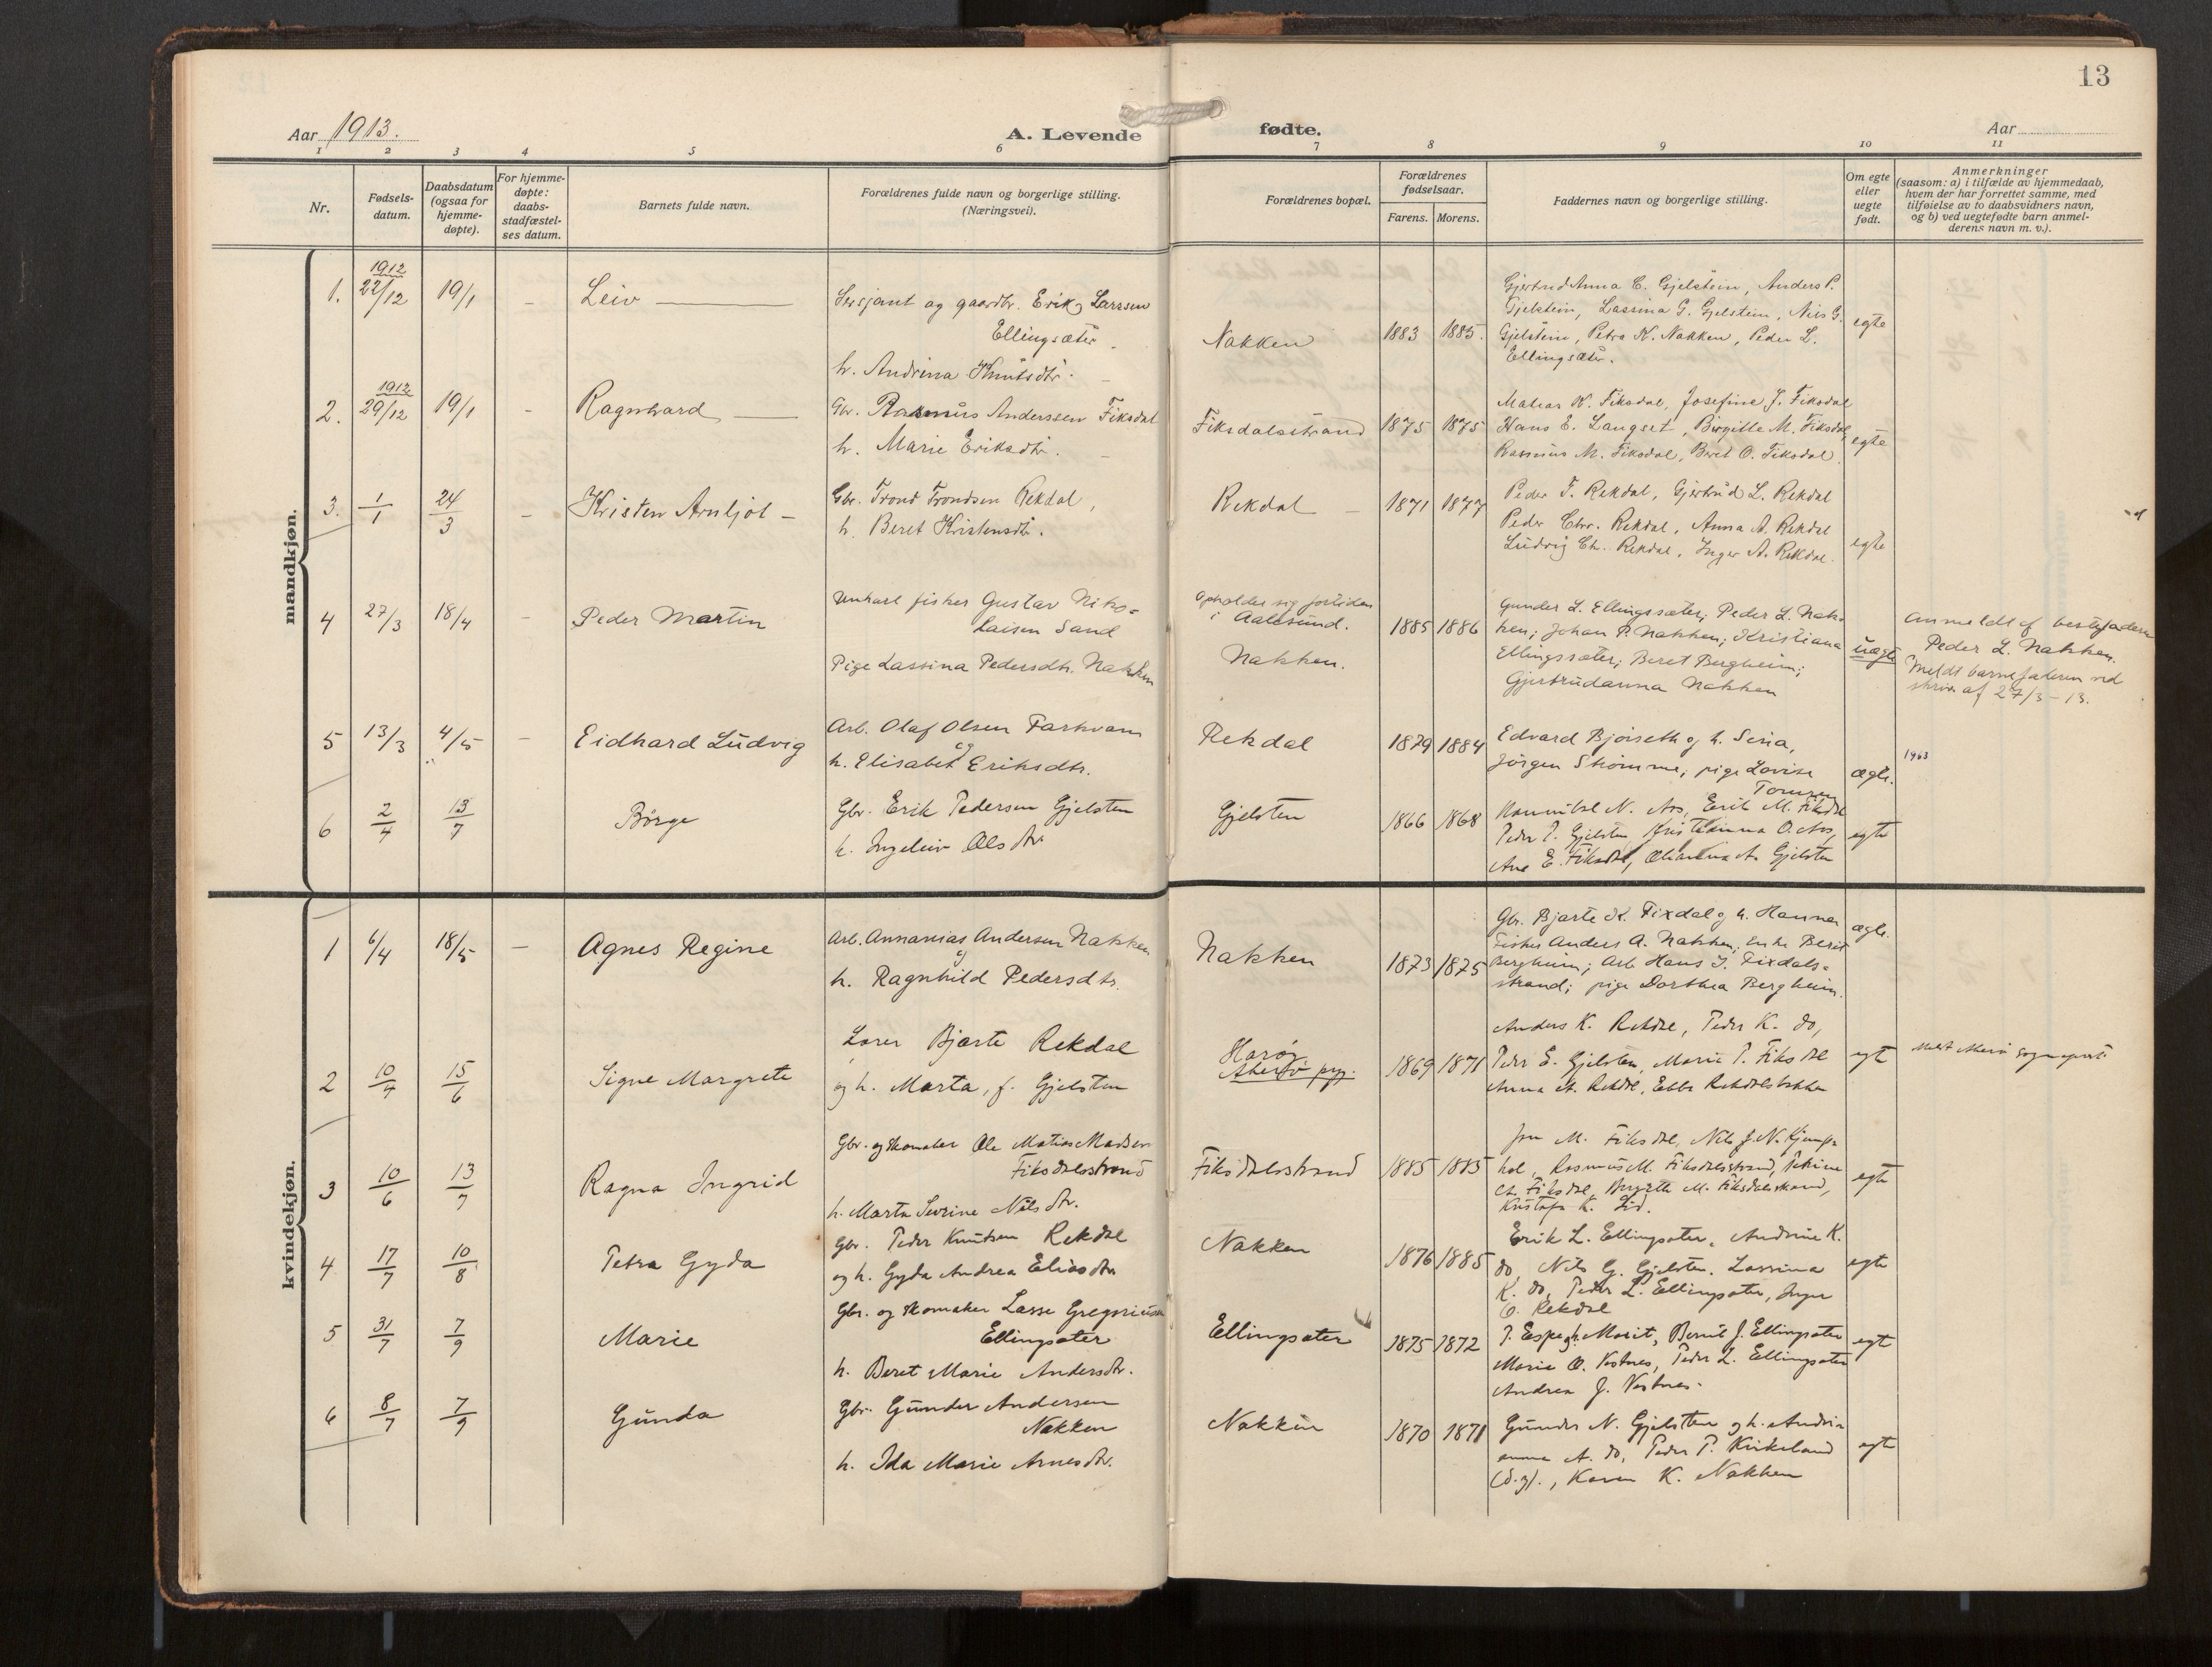 13
Aar 1913.
A. Levende fødte.
Aar
1 2 3 4 5 6 7 8 9 10 11
Nr.
Fødsels-
datum.
Daabsdatum
(ogsaa for
hjemme-
døpte).
For hjemme-
døpte:
daabs-
stadfæstel-
ses datum.
Barnets fulde navn.
Forældrenes fulde navn og borgerlige stilling.
(Næringsvei).
Forældrenes bopæl.
Forældrenes
fødselsaar.
Farens. Morens.
Faddernes navn og borgerlige stilling.
Om egte
eller
uegte
født.
Anmerkninger
(saasom: a) i tilfælde av hjemmedaab,
hvem der har forrettet samme, med
tilføielse av to daabsvidners navn,
og b) ved uegtefødte barn anmel-
derens navn m. v.).
mandkjøn.
1. 1912 22/12 19/1 - Leiv
Sersjant og gaardbr. Erik Larssen
Ellingsæter.
h. Andrina Knutsdtr.
Nakken 1883 1885.
Gjertrud Anna C. Gjelstein, Anders P.
Gjelstein, Lassina G. Gjelstein, Nils G.
Gjelstein, Petra K. Nakken, Peder L.
Ellingsæter.
egte
2. 1912 29/12 19/1 - Ragnhard
Gbr. Rasmus Anderssen Fiksdal
h. Marie Eriksdtr.
Fiksdalsstrand 1875 1875
Matias K. Fiksdal, Josefine J. Fiksdal
Hans E. Langset, Birgitte M. Fiksdal,
Rasmus M. Fiksdal, Beret O. Fiksdal.
egte
3. 1/1 24/3 - Kristen Arnljot -
Gbr. Trond Trondsen Rekdal,
h. Beret Kristensdtr.
Rekdal 1871 1877
Peder T. Rekdal, Gjertrud L. Rekdal
Peder Chr. Rekdal, Anna A. Rekdal
Ludvig Ch. Rekdal, Inger A. Rekdal.
egte
4 27/3 18/4 - Peder Martin
Unkarl fisker Gustav Niko-
laisen Sand
Pige Lassina Pedersdtr. Nakken
Opholder sig fortiden
i Aalesund.
Nakken.
1885 1886
Gunder L. Ellingssæter; Peder L. Nak-
ken; Johan P. Nakken; Kristiana
Ellingssæter; Beret Bergheim;
Gjertrudanna Nakken
uægte
Anmeldt af bestefaderen
Peder L. Nakken.
Meldt barnefaderen ved
skriv. af 27/3-13.
5 13/3 4/5 - Eidhard Ludvig
Arb. Olaf Olsen Farkvam
og
h. Elisabet Eriksdtr.
Rekdal 1879 1884
Edvard Bjøiseth og h. Seria,
Jörgen Strömme, pige Lovise
Tomren
ægte.
1963
6 2/4 13/7 Börge
Gbr. Erik Pedersen Gjelsten
h. Ingeleiv Olsdtr
Gjelsten 1866 1868
Hannibal N. Aas, Erik M. Fiksdal
Peder P. Gjelsten, Kristianna O. Aas,
Ane E. Fiksdal, A. Gjelsten
egte
kvindekjøn.
1 6/4 18/5 - Agnes Regine
Arb. Annanias Andersen Nakken
og
h. Ragnhild Pedersdtr.
Nakken 1873 1875
Gbr. Bjarte K. Fixdal og h. Hanna
Fisker Anders A. Nakken; Enke Berit
Bergheim; Arb Hans J. Fixdals-
strand; pige Dorthea Bergheim.
ægte.
2 10/4 15/6 Signe Margrete
Lærer Bjarte Rekdal
og h. Marta, f. Gjelsten
Harøy
Akerø pgj. 1869 1871
Anders K. Rekdal, Peder K. do,
Peder E. Gjelsten, Marie P. Fiksdal
Anna A. Rekdal, Ebba Rekdalsbakken
egte
Meldt Akerø sogneprest
3 10/6 13/7 Ragna Ingrid
Gbr. og skomaker Ole Matias Madsen
Fiksdalsstrand
h. Marta Sevrine Nilsdtr.
Fiksdalsstrand 1885 1885
M. Fiksdal, Nils J. N.
Rasmus M. Fiksdalsstrand,
A. Fiksdal, Birgitte M. Fiksdalsstrand,
Kristofa K.
egte
4 17/7 10/8 Petra Gyda
Gbr. Peder Knutsen Rekdal
og h. Gyda Andrea Eliasdtr
Nakken 1876 1885
Erik L. Ellingsæter, Andrine K.
do, Nils G. Gjelsten. Lassina
K. do, Peder L. Ellingsæter, Inger
O. Rekdal
egte
5 31/7 7/9 Marie
Gbr. og skomaker Lasse Gregoriusen
Ellingsæter
h. Beret Marie Andersdtr.
Ellingsæter 1875 1872
P. Espe og h. Marit, Bernt J. Ellingsæter
Marie O. Vestnes, Peder L. Ellingsæter
Andrea J. Vestnes.
egte
6 8/7 7/9 Gunda
Gbr. Gunder Andersen
Nakken
h. Ida Marie Arnesdtr.
Nakken 1870 1871
Gunder N. Gjelsten og h. Andri-
anna A. do, Peder P. Kirkeland
(d.y)., Karen K. Nakken
egte